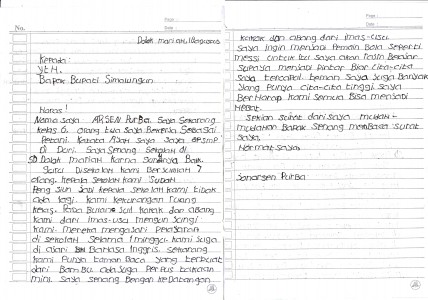 No.
Dolok mariah,
Kepada:
YtH.
Bapak Bupati Simalungun
Horas!
Nama saya ARSEN PurBa. Saya Sekarang
kelas 6. orang tua saya Bekerja Sebagai
Petani. Kakata Ayah saya Saya
Di Dari. Saya Senang Sekolah di
SD Dolok mariah karna Guru nya Baik
Guru Disekolah kami Berjumlah 7
orang. Kepala sekolah kami Sudah
Pensiun Jadi kepala sekolah kami tidak
ada lagi. kami kekurangan ruang
kelas. Pada Bulan Juli kakak dan abang
kami dari imas-usu mengunjungi
kami. mereka mengajari pelajaran
di sekolah Selama 1 minggu. kami Juga
di ajari Bahasa Inggris. Sekarang
kami Punya taman Baca yang terbuat
dari Bambu. ada Juga Perpustakaan
mini. Saya senang Dengan keDatangan
kakak dan abang dari imas-usu.
Saya ingin menjadi Pemain Bola Seperti
messi untuk itu saya akan rajin Belajar
supaya menjadi pintar Biar cita-cita
Saya tercapai. teman saya Juga Banyak
yang Punya cita-cita tinggi. Saya
BerHarap kami semua Bisa menjadi
HeBat.
Sekian surat dari saya mudah-
mudahan Bapak Senang membaca Surat
saya.
Hormat saya
Sonarsen Purba